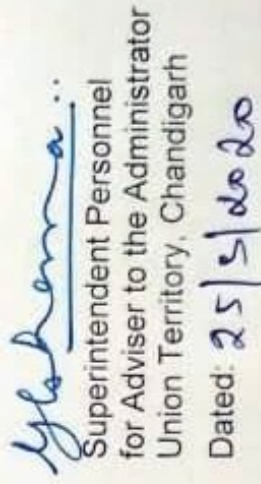 Superintendent Personnel
for Adviser to the Administrator
Union Territory, Chandigarh
Dated: 25/5/2020